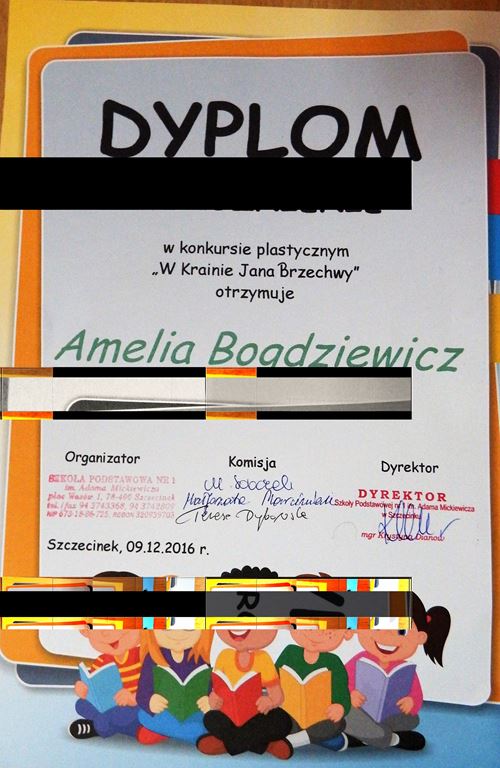 DYPLOM
w konkursie plastycznym
„W Krainie Jana Brzechwy”
otrzymuje
Amelia Bogdziewicz
Organizator
Komisja
Dyrektor
SZKOŁA PODSTAWOWA NR 1
im. Adama Mickiewicza
plac Wazów 1, 78-400 Szczecinek
tel. / fax 94 3743368, 94 3742809
NIP 673-18-86-725, REGON 320939703
M. Sobczak
Małgorzata Marciniak
Teresa
DYREKTOR
Szkoły Podstawowej nr 1 im. Adama Mickiewicza
w Szczecinku
mgr Krystyna Dianow
Szczecinek, 09.12.2016 r.